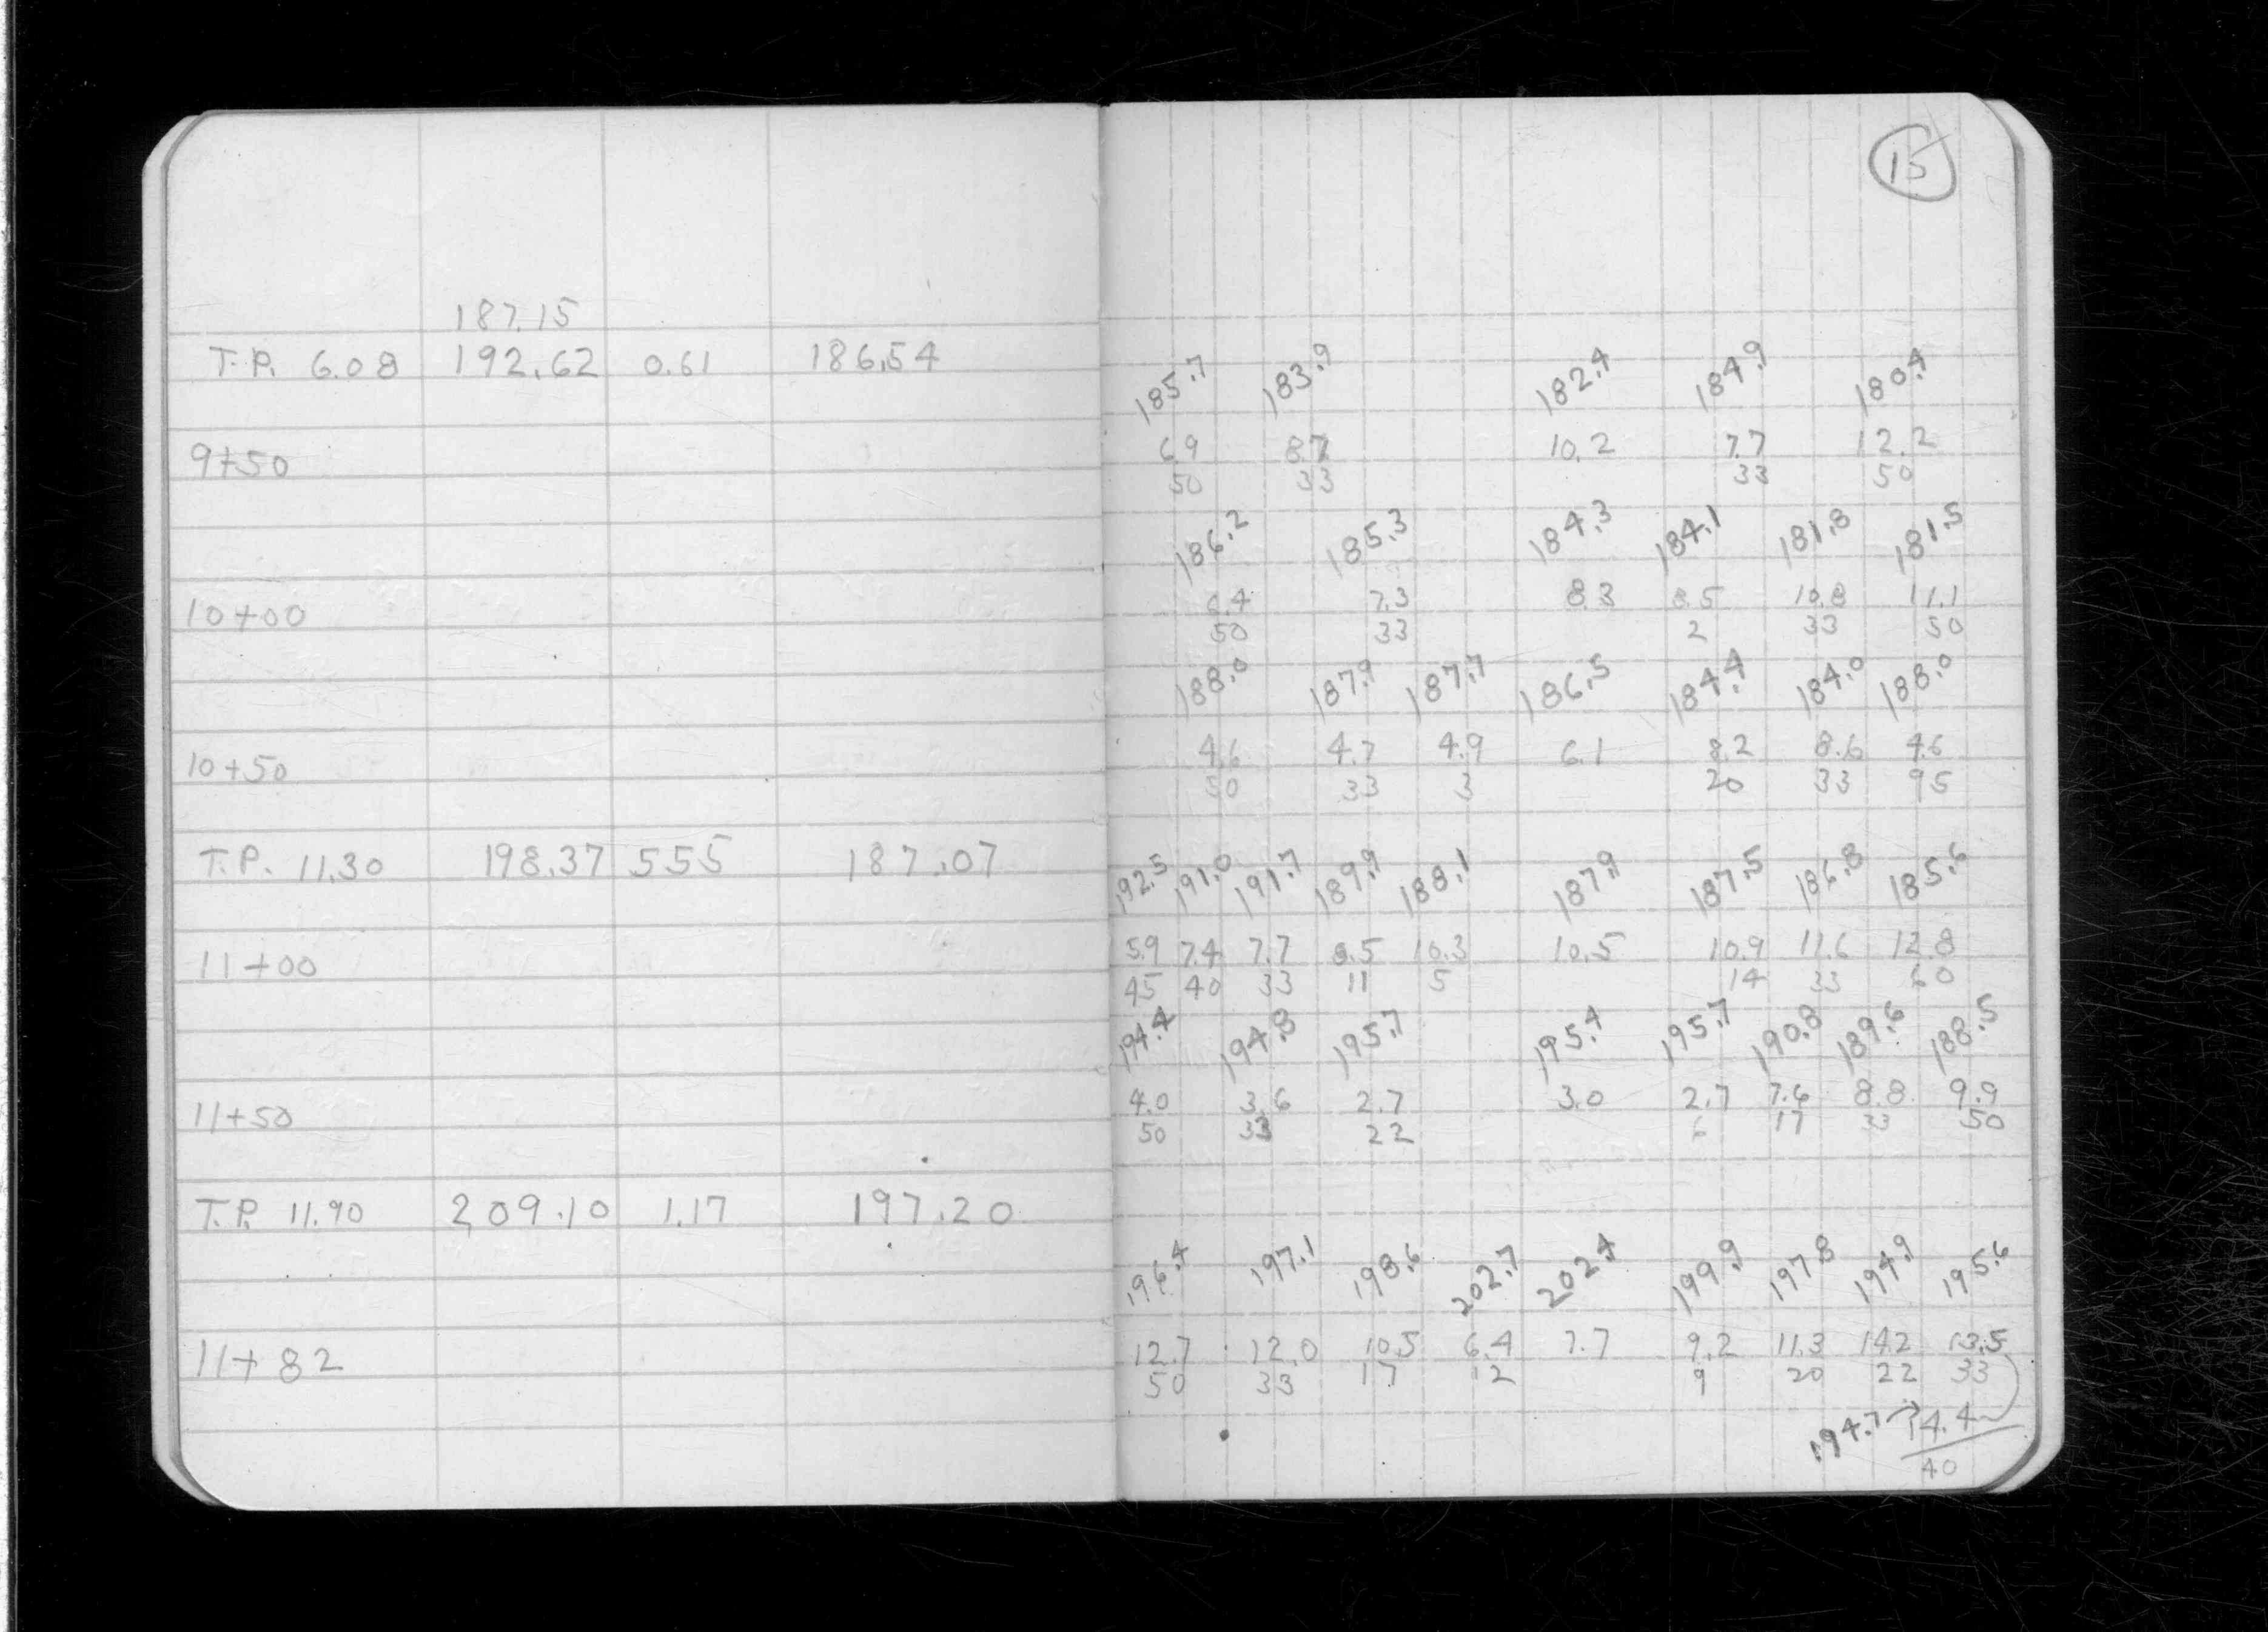 15
187.15
T.P. 6.08 192.62 0.61 186.54
185.7 183.9 182.4 184.9 180.4
9+50 6.9 8.7 10.2 7.7 12.2
50 33 33 50
186.2 185.3 184.3 184.1 181.8 181.5
10+00 6.4 7.3 8.3 8.5 10.8 11.1
50 33 2 33 50
188.0 187.9 187.7 186.5 184.4 184.0 188.0
10+50 4.6 4.7 4.9 6.1 8.2 8.6 4.6
50 33 3 20 33 95
T.P. 11.30 198.37 555 187.07
192.5 191.0 191.7 189.9 188.1 187.9 187.5 186.8 185.6
11+00 5.9 7.4 7.7 8.5 10.3 10.5 10.9 11.6 12.8
45 40 33 11 5 14 33 60
194.4 194.8 195.7 195.4 195.7 190.8 189.6 188.5
11+50 4.0 3.6 2.7 3.0 2.7 7.6 8.8 9.9
50 33 22 6 17 33 50
T.P. 11.90 209.10 1.17 197.20
196.4 197.1 198.6 202.7 202.4 199.9 197.8 194.9 195.6
11+82 12.7 12.0 10.5 6.4 7.7 9.2 11.3 14.2 13.5
50 33 17 12 9 20 22 33
194.7 → 14.4
40